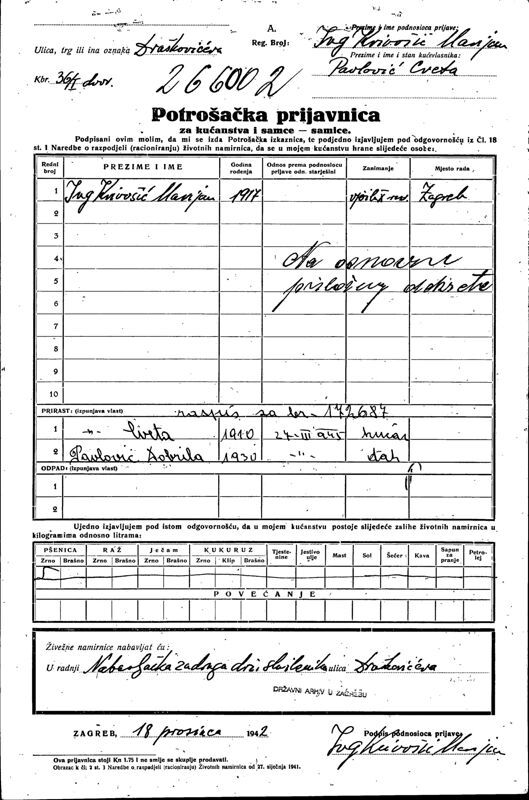 A.
Reg. Broj:
Prezime i ime podnosioca prijave:
Ing Krivošić Marijan
Ulica, trg ili ina oznaka Draškovićeva
Prezime i ime i stan kućevlasnika:
Pavlović Cveta
Kbr. 36/I dvor.
266002
Potrošačka prijavnica
za kućanstva i samce — samice.
Podpisani ovim molim, da mi se izda Potrošačka izkaznica, te podjedno izjavljujem pod odgovornošću iz Čl. 18
st. 1 Naredbe o razpodjeli (racioniranju) životnih namirnica, da se u mojem kućanstvu hrane slijedeće osobe:
Redni broj PREZIME I IME Godina rođenja Odnos prema podnosiocu prijave odn. starješini Zanimanje Mjesto rada
1 Ing Krivošić Marijan 1917 Zagreb
2
3
4 Na osnovu
5 dekreta
6
7
8
9
10
PRIRAST: (izpunjava vlast) raspis za br. 172687
1 -"- Cveta 1910 24-III 945 kućan
2 Pavlović Dobrila 1930 -"- đak
ODPAD: (izpunjava vlast)
1
2
Ujedno izjavljujem pod istom odgovornošću, da u mojem kućanstvu postoje slijedeće zalihe životnih namirnica u
kilogramima odnosno litrama:
PŠENICA RAŽ Ječam KUKURUZ Tjestenine Jestivo ulje Mast Sol Šećer Kava Sapun za pranje Petrolej
Zrno Brašno Zrno Brašno Zrno Brašno Zrno Klip Brašno
POVEĆANJE
Živežne namirnice nabavljat ću:
U radnji Nabavljačka zadruga drž. službenika ulica Draškovićeva
DRŽAVNI ARHIV U ZAGREBU
ZAGREB, 18 prosinca 1942
Podpis podnosioca prijave:
Ing Krivošić Marijan
Ova prijavnica stoji Kn 1.75 i ne smije se skuplje prodavati.
Obrazac k čl. 2 st. 3 Naredbe o razpodjeli (racioniranju) Životnih namirnica od 27. siječnja 1941.